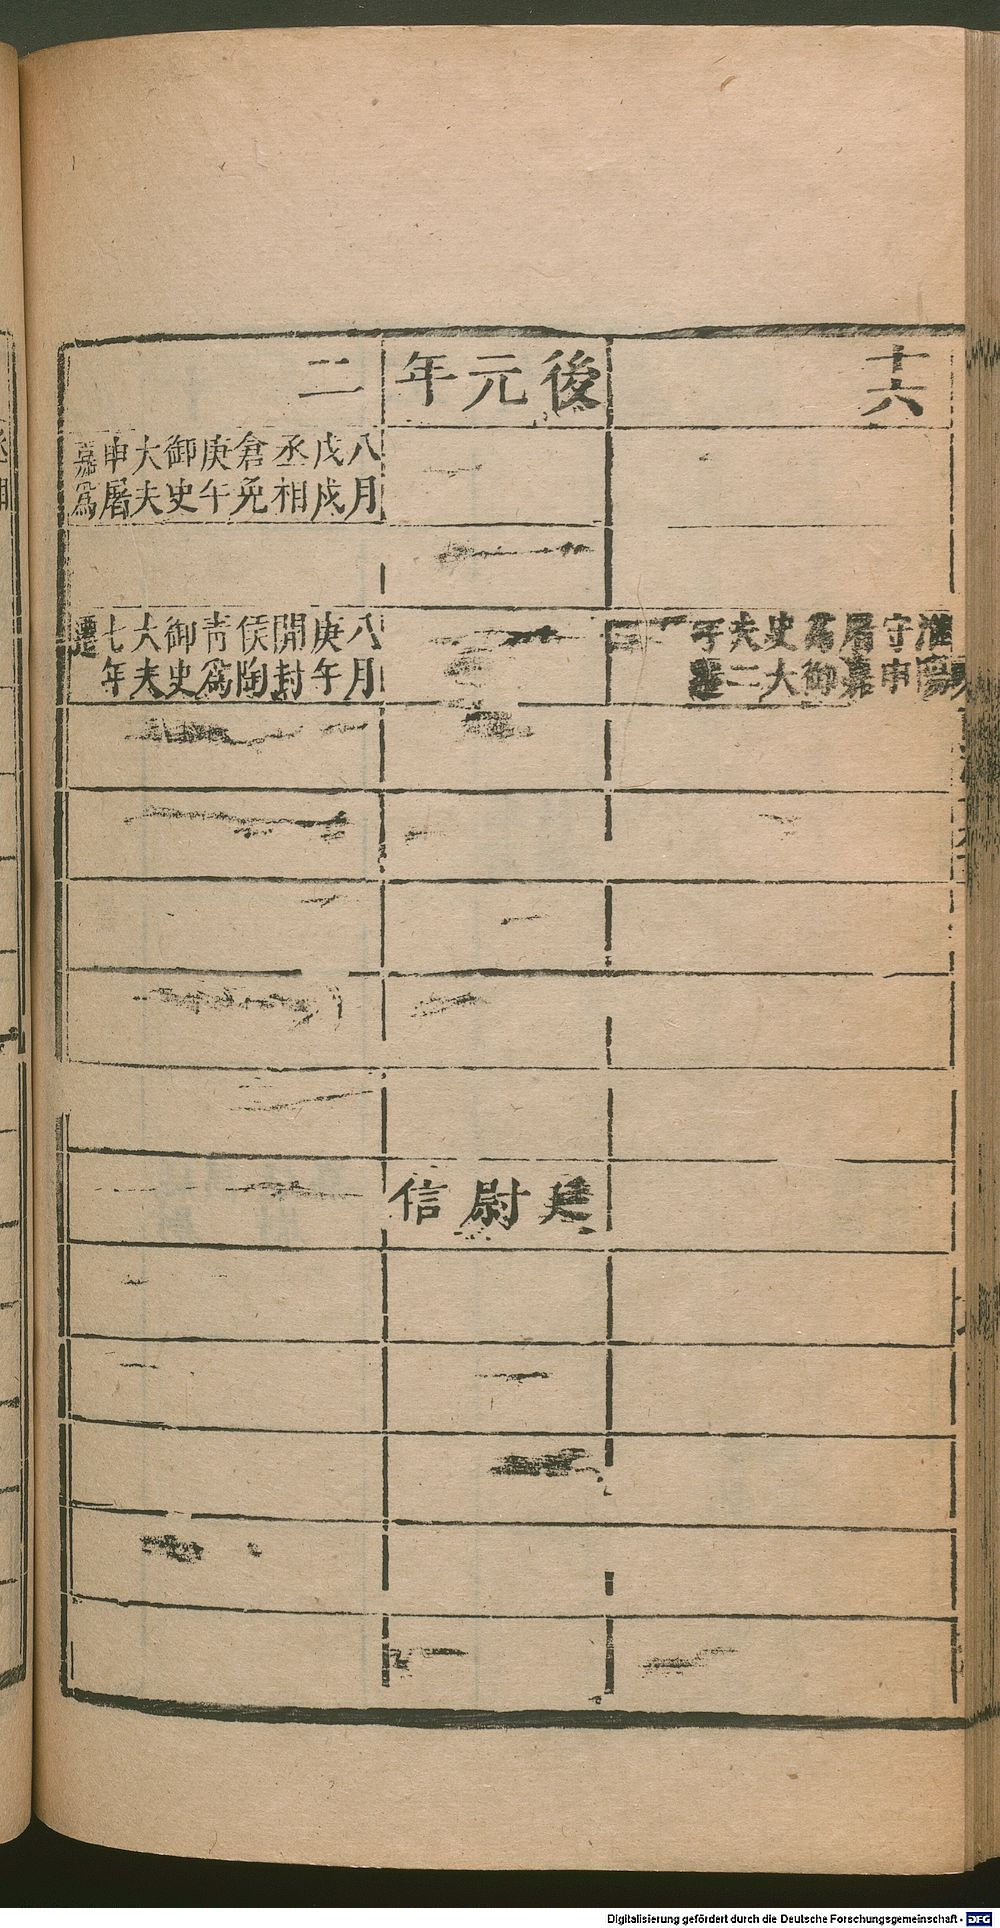 十六
淮陽守申屠嘉爲御史大夫二年遷
後元年
廷尉信
二
八月戊戌丞相倉免庚午御史大夫申屠嘉爲
八月庚午開封侯陶青爲御史大夫七年遷
Digitalisierung gefördert durch die Deutsche Forschungsgemeinschaft - DFG